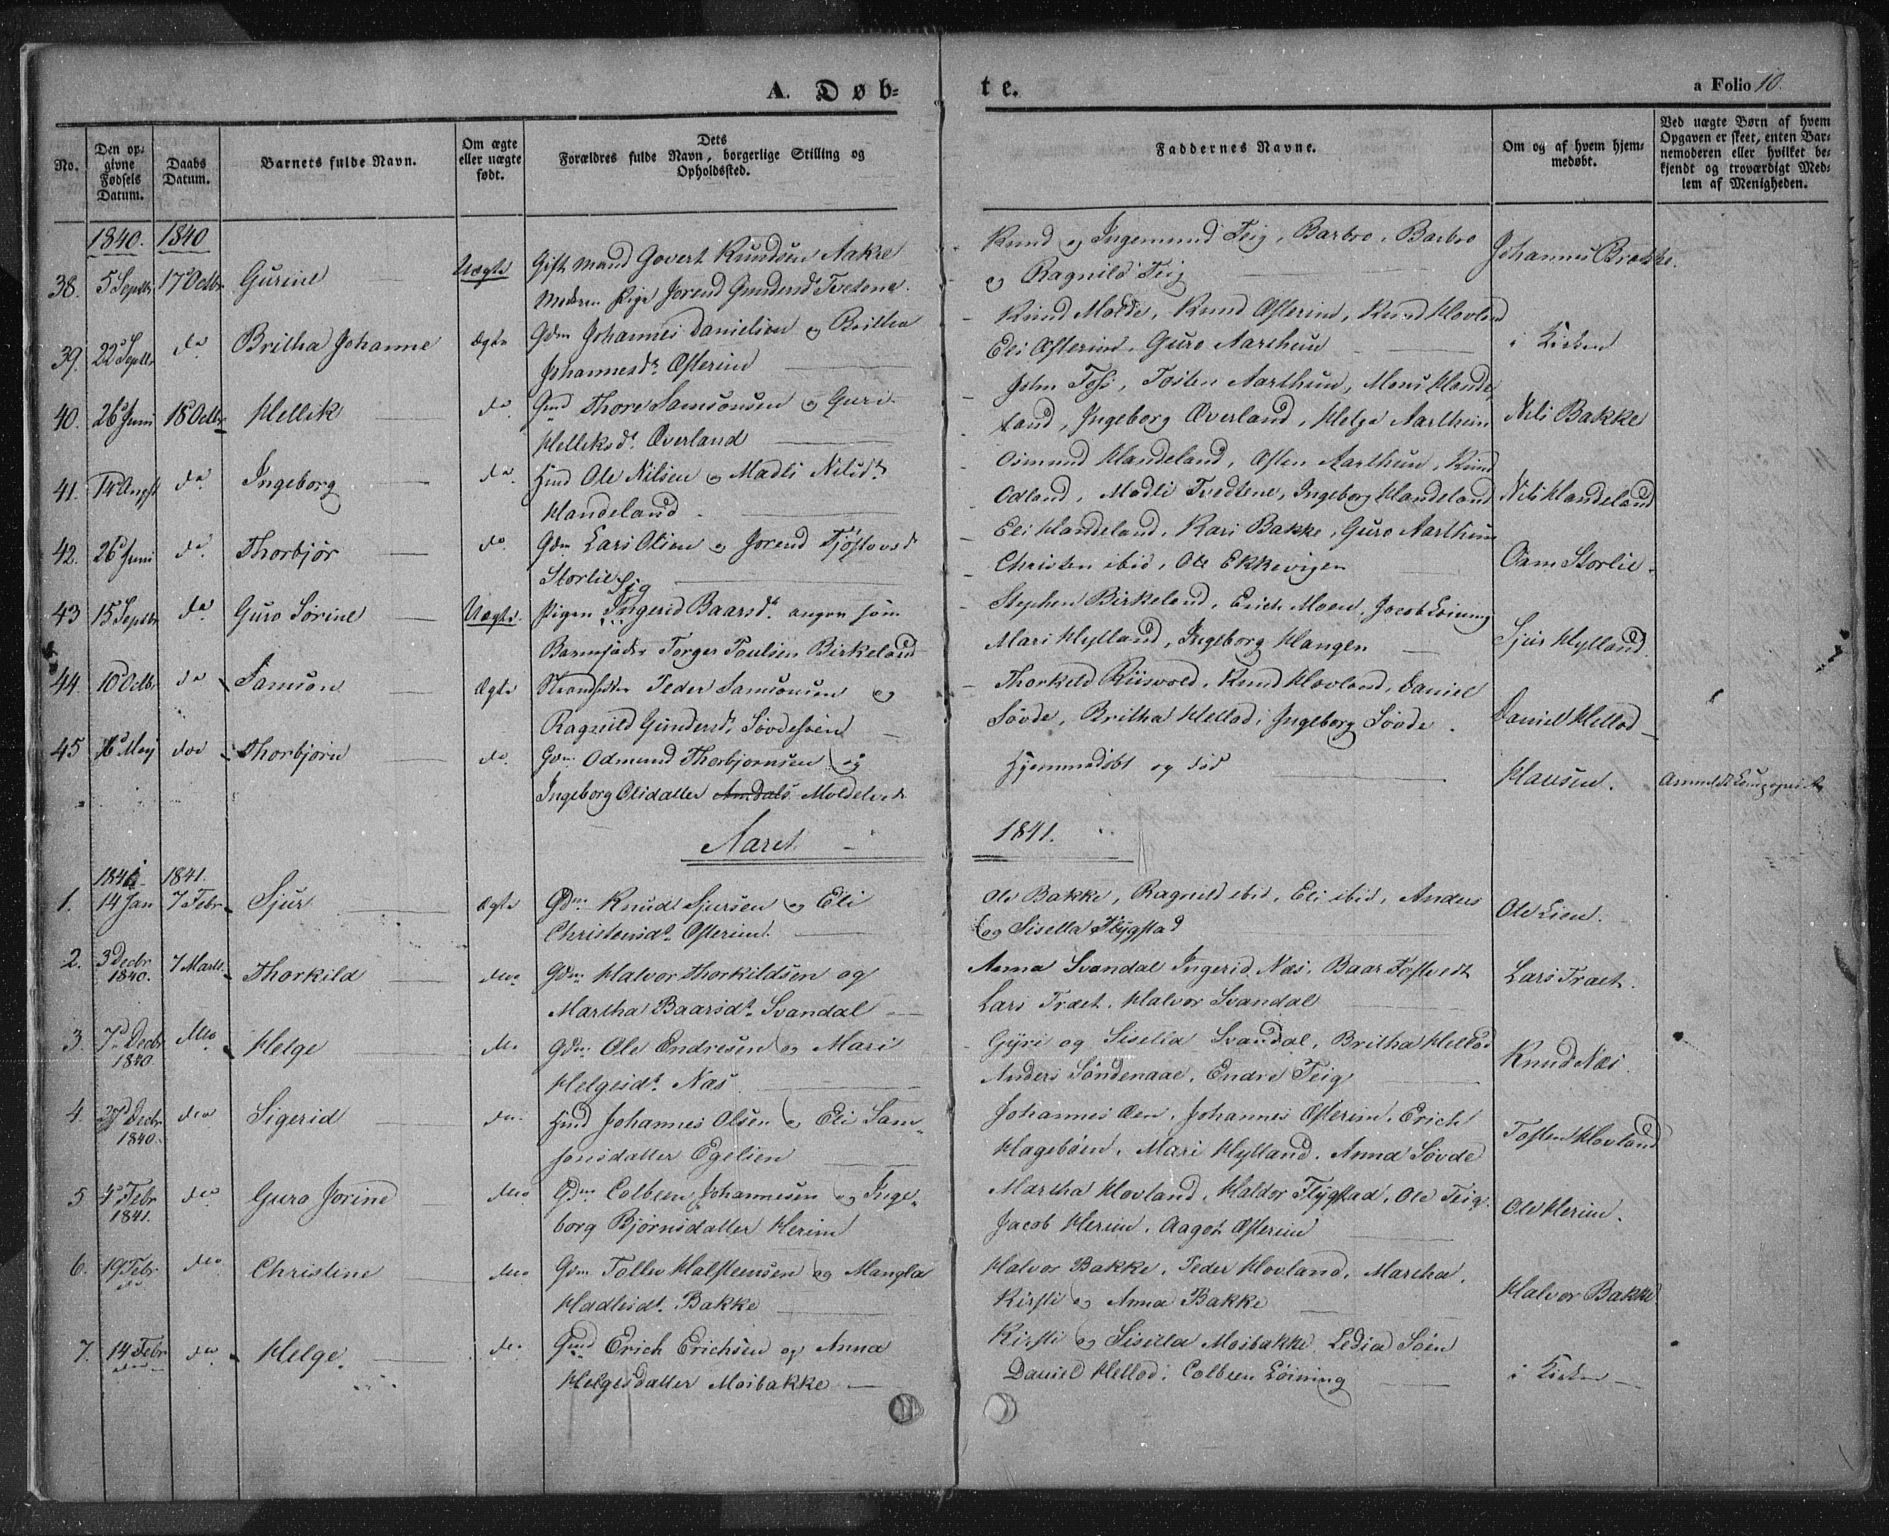 A. Døb-
te.
a Folio 10.
No.
Den op-
givne
Fødsels
Datum.
Daabs
Datum.
Barnets fulde Navn.
Om ægte
eller uægte
født.
Dets
Forældres fulde Navn, borgerlige Stilling og
Opholdssted.
Faddernes Navne.
Om og af hvem hjem-
medøbt.
Ved uægte Børn af hvem
Opgaven er skeet, enten Bar-
nemoderen eller hvilket be-
kjendt og troværdigt Med-
lem af Menigheden.
1840. 1840
38. 5 Septbr 17 Octbr Gurine Uægte Gift Mand Govert Knudsen Aakre
Moderen Pige Jorend Gundersdr Tvetene.
Knud og Ingemund Teig, Barbro, Barbro
og Ragnild Teig
Johannes Brakke.
39. 22 Septbr do Britha Johanne Ægte Gdm Johannes Danielsen og Britha
Johannesdr Østerim
Knud Molde, Knud Østerim, Knud Hovland
Eli Østerim, Guro Aarthun
i Kirken
40. 26 Juni 18 Octbr Hellik do. Thore Samsonsen og Guri
Helliksdr. Øverland
John Tofte, Tosten Aarthun, Mons Hande-
land, Ingeborg Øverland, Helge Aarthun
Nils Bakke
41. 14 Augst do. Ingeborg do. Hmd Ole Nilsen og Madli Nilsdr
Handeland.
Osmund Handeland, Osten Aarthun, Knud
Odland, Madli Tvedtene, Ingeborg Handeland
Nils Handeland
42. 26 Juni do. Thorbjør do. Gdm Lars Olsen og Jorend Tjøstovsd
Storlie
Eli Handeland, Kari Bakke, Guro Aarthun
Christen ibid, Ole Ekkevigen
Oam Storlie.
43 15 Septbr do Guro Sørine Uægte. Pigen Ingerid Baarsdr. angav som
Barnefader Torger Poulsen Birkeland
Stephen Birkeland, Erich Moen, Jacob Loining
Mari Hylland, Ingeborg Hangen
Sjur Hylland.
44. 10 Octbr do Samson Ægte Strandsidder Peder Samsonsen og
Ragnild Gundersdr Søvdesøen
Thorkeld Riisvold, Knud Hovland, Daniel
Søvde, Britha Hellod, Ingeborg Søvde.
Daniel Hellod
45 16 May do Thorbjørn do. Gdm Odmund Thorbjørnsen og
Ingeborg Olsdatter Amdals Moldetvedt
Hjemmedøbt og død
Hansen.
Aaret
1841.
1841. 1841.
1. 14 Jan 7 Febr Sjur Ægte Gdm Knud Sjursen og Eli
Christensdr. Østerim.
Ole Bakke, Ragnild ibid, Eli ibid, Anders
og Sisella Flygstad
Ole Lien.
2. 3 Decbr
1840. 7 Marts Thorkild do Gdm Halvor Thorkildsen og
Martha Baarsdr. Svandal
Anna Svandal Ingerid Næs, Baar Tostvedt
Lars Træet, Halvor Svandal
Lars Traet.
3. 7 Decbr
1840. do Helge do Gdm Ole Endresen og Mari
Helgesdr. Næs
Gyri og Sisella Svandal, Britha Hellod
Anders Søndenaae, Endre Teig
Knud Næs.
4 Decbr
1840. do Sigerid do Hmd Johannes Olsen og Eli Sam-
sonsdatter Egelien
Johannes Øen, Johannes Østerim, Erich
Hagebøen, Mari Hylland, Anna Søvde
Tosten Hovland
5 4 Febr
1841. do Guro Jorine do Gdm Colbeen Johannesen og Inge-
borg Bjørnsdatter Herim
Martha Hovland, Haldor Flygstad, Ole Teig.
Jacob Herim, Aagot Østerim
Ole Herim.
6. 19 Febr
do do Christine do Gdm Tollev Halsteensen og Mangla
Hadlesdr. Bakke
Halvor Bakke, Peder Hovland, Martha,
Kirsti og Anna Bakke
Halvor Bakke
7. 14 Febr
do do Helge. do Erich Erichsen og Anna
Helgesdatter Moibakke
Kirsti og Sisella Moibakke, Ledia Søen
Daniel Hellod, Colbeen Loining
i Kirken